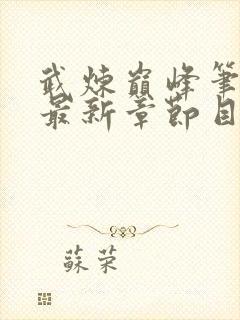 武煉巔峰筆
最新章節目
蘇荣